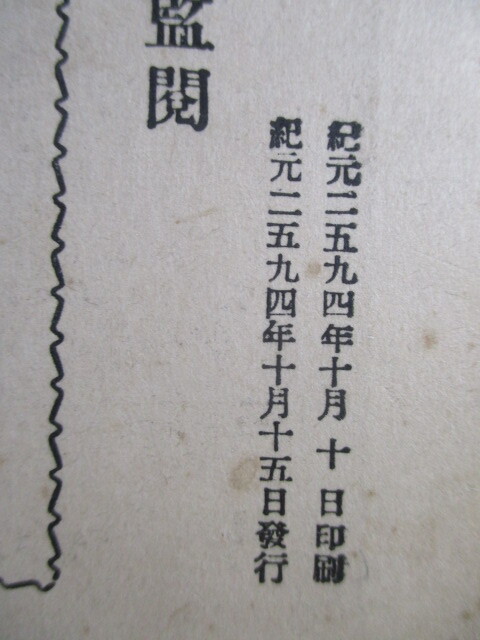 紀元二五九四年十月十日印刷
紀元二五九四年十月十五日發行
監閱